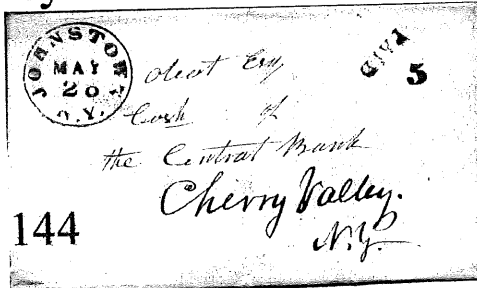 JOHNSTOWN
MAY
20
N.Y.
PAID
5
Esq
Cash of
the Central Bank
Cherry Valley.
N.Y.
144